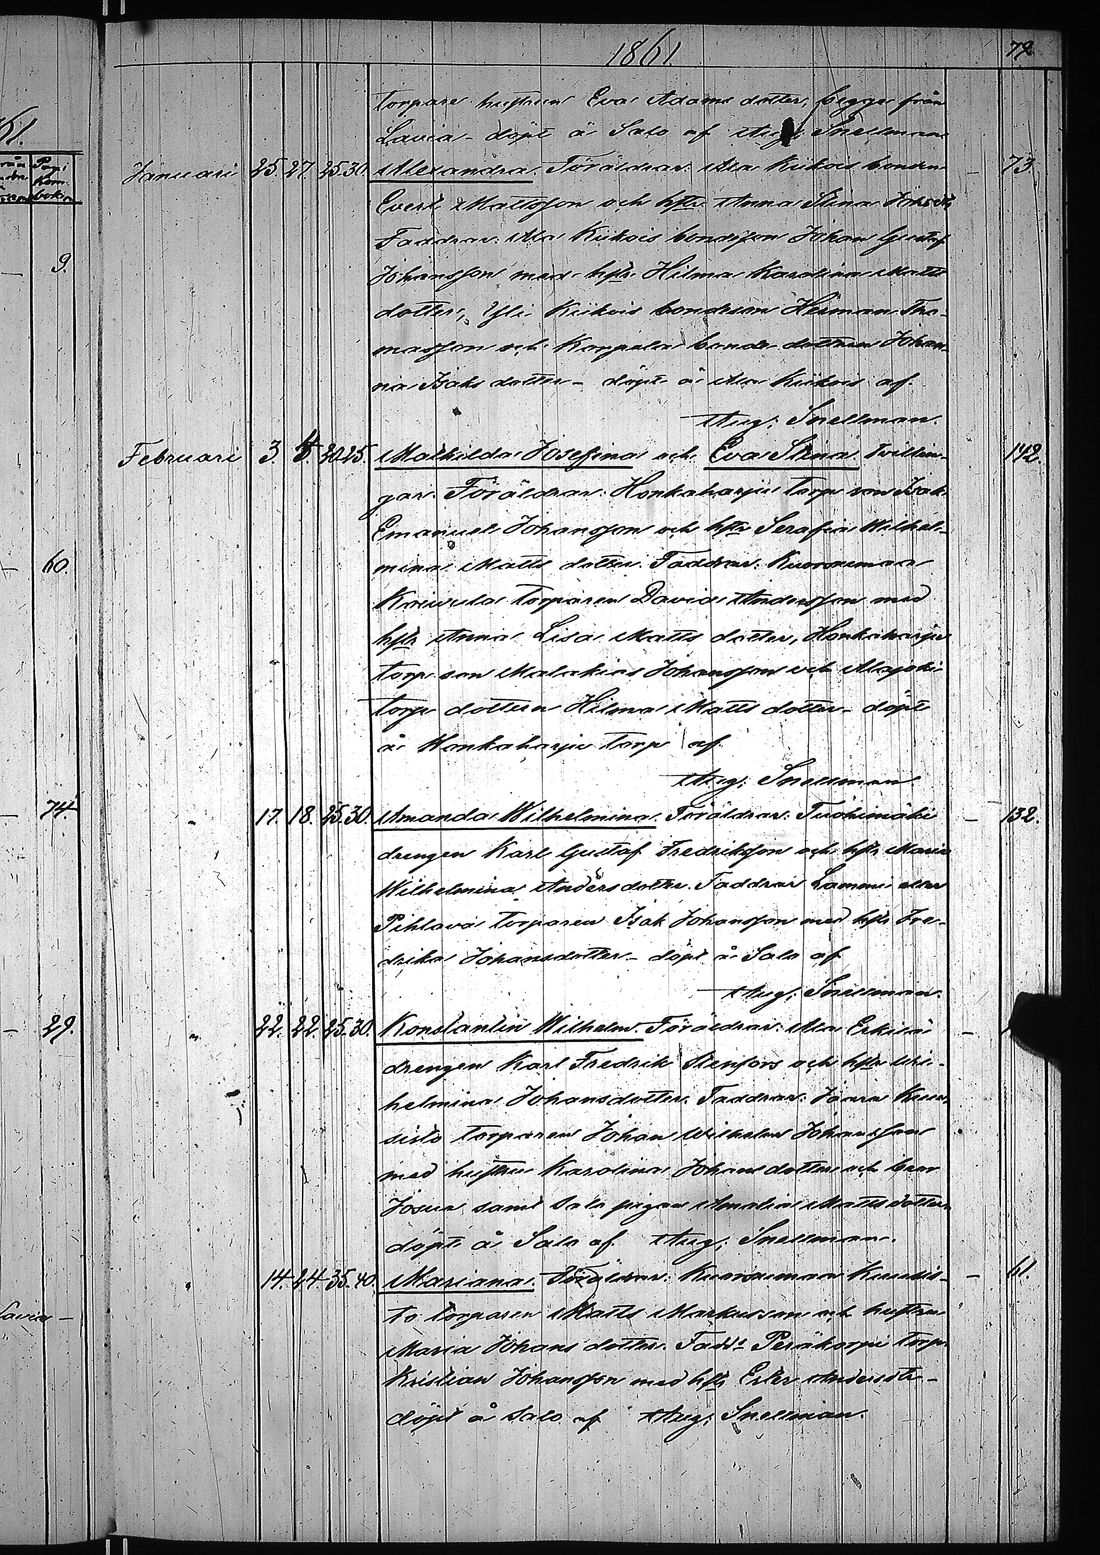 1861
72
torpare hustrun Eva Adams dotter, begge från
Lavia - döpt å Salo af Aug. Snellman
Januari 25. 27. 25.30. Alexandra. Föräldrar: Ala Kiikois bonden - 73.
Evert Mattsson och hstr Anna Stina Johsdtr
Faddrar: Ala Kiikois bondeson Johan Gustaf
Johansson med hstr Hilma Karolina Matts
dotter, Yli Kiikois bondeson Herman Tho-
masson och Korpela bonde dottern Johan-
na Isaks dotter - döpt å Ala Kiikois af
Aug. Snellman.
Februari 3. 4. 20.25. Mathilda Josefina och Eva Stina tvillin- 142.
gar. Föräldrar: Honkaharju torp son Isak
Emanuel Johansson och hstr Serafia Wilhel-
mina Matts dotter. Faddrar: Kuorsumaa
torparen David Andersson med
hstr Anna Lisa Matts dotter, Honkaharju
torp son Malakias Johansson och Alajoki
torp dottern Hilma Matts dotter - döpt
å Honkaharju torp af
Aug. Snellman
17. 18. 25.30. Amanda Wilhelmina. Föräldrar: Tuohimäki - 132.
drengen Karl Gustaf Fredriksson och hstr Maria
Wilhelmina Andersdotter. Faddrar Lammi eller
Pihlava torparen Isak Johansson med hstr Fre-
drika Johansdotter - döpt å Salo af
Aug. Snellman.
22. 22. 25.30. Konstantin Wilhelm. Föräldrar: Ala Erkilä -
drengen Karl Fredrik Stenfors och hstr Wil-
helmina Johansdotter. Faddrar: Jaara Kuu-
sisto torparen Johan Wilhelm Johansson
med hustru Karolina Johansdotter och
Josua samt Salo pigan Amalia Mattsdotter
döpt å Salo af Aug. Snellman.
14. 24. 35.40. Mariana. Föräldrar: Kuorsumaa Kuusis- - 61.
to torparen Matts Markusson och hustrun
Maria Johans dotter. Faddr Peräkorpi torp.
Kristian Johansson med hstr Ester Andersdtr -
döpt å Salo af Aug. Snellman.
61.
9.
60.
74
29.
Lavia -